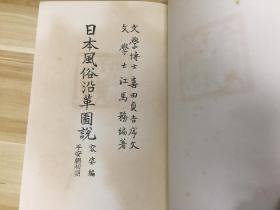 文學博士 喜田貞吉序文
文學士 江馬務編著
日本風俗沿革圖說
平安朝初期